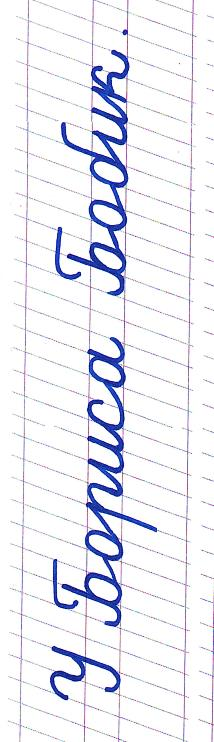 У Бориса Бобик.